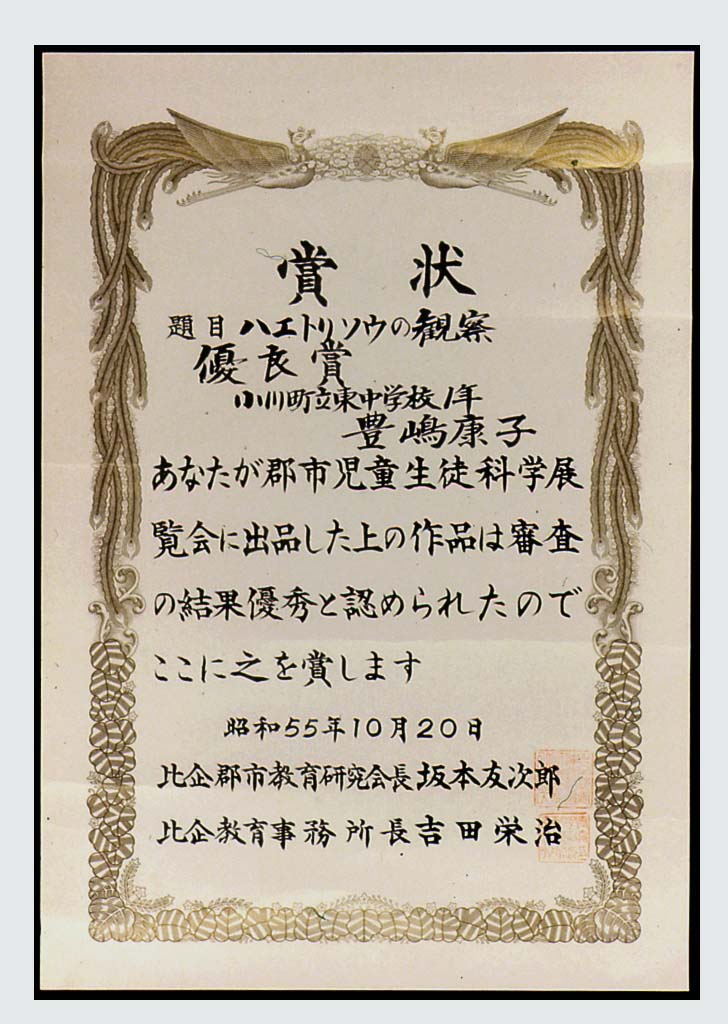 賞状
題目ハエトリソウの観察
優良賞
小川町立東中学校1年
豊嶋康子
あなたが郡市児童生徒科学展
覧会に出品した上の作品は審査
の結果優秀と認められたので
ここに之を賞します
昭和55年10月20日
比企郡市教育研究会長坂本友次郎
比企教育事務所長吉田栄治